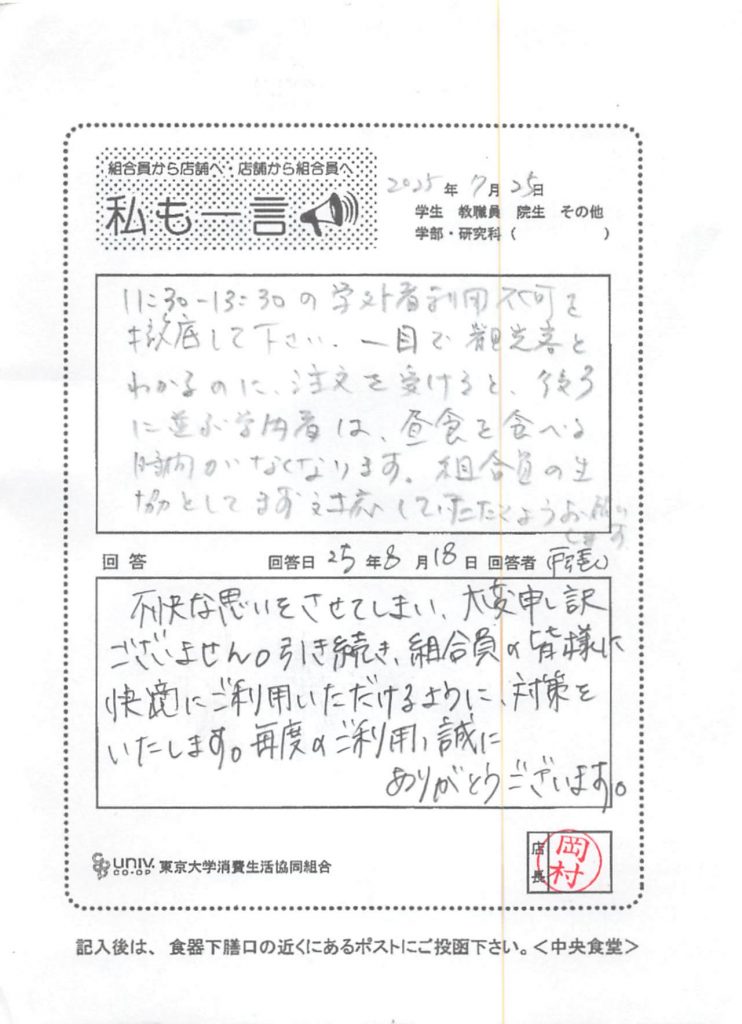 組合員から店舗へ・店舗から組合員へ
私も一言
2025年 7月 25日
学生 教職員 院生 その他
学部・研究科( )
11:30-13:30の学外者利用不可を
徹底して下さい。一目で観光客と
わかるのに、注文を受けると、後ろ
に並ぶ学内者は、昼食を食べる
時間がなくなります。組合員の生
協としてまず対応していただくようお願い
します
回答 回答日 25年8月18日 回答者 (店長)
不快な思いをさせてしまい、大変申し訳
ございません。引き続き、組合員の皆様に
快適にご利用いただけるように、対策を
いたします。毎度のご利用、誠に
ありがとうございます。
univ. CO-OP 東京大学消費生活協同組合
店長 岡村
記入後は、食器下膳口の近くにあるポストにご投函下さい。<中央食堂>